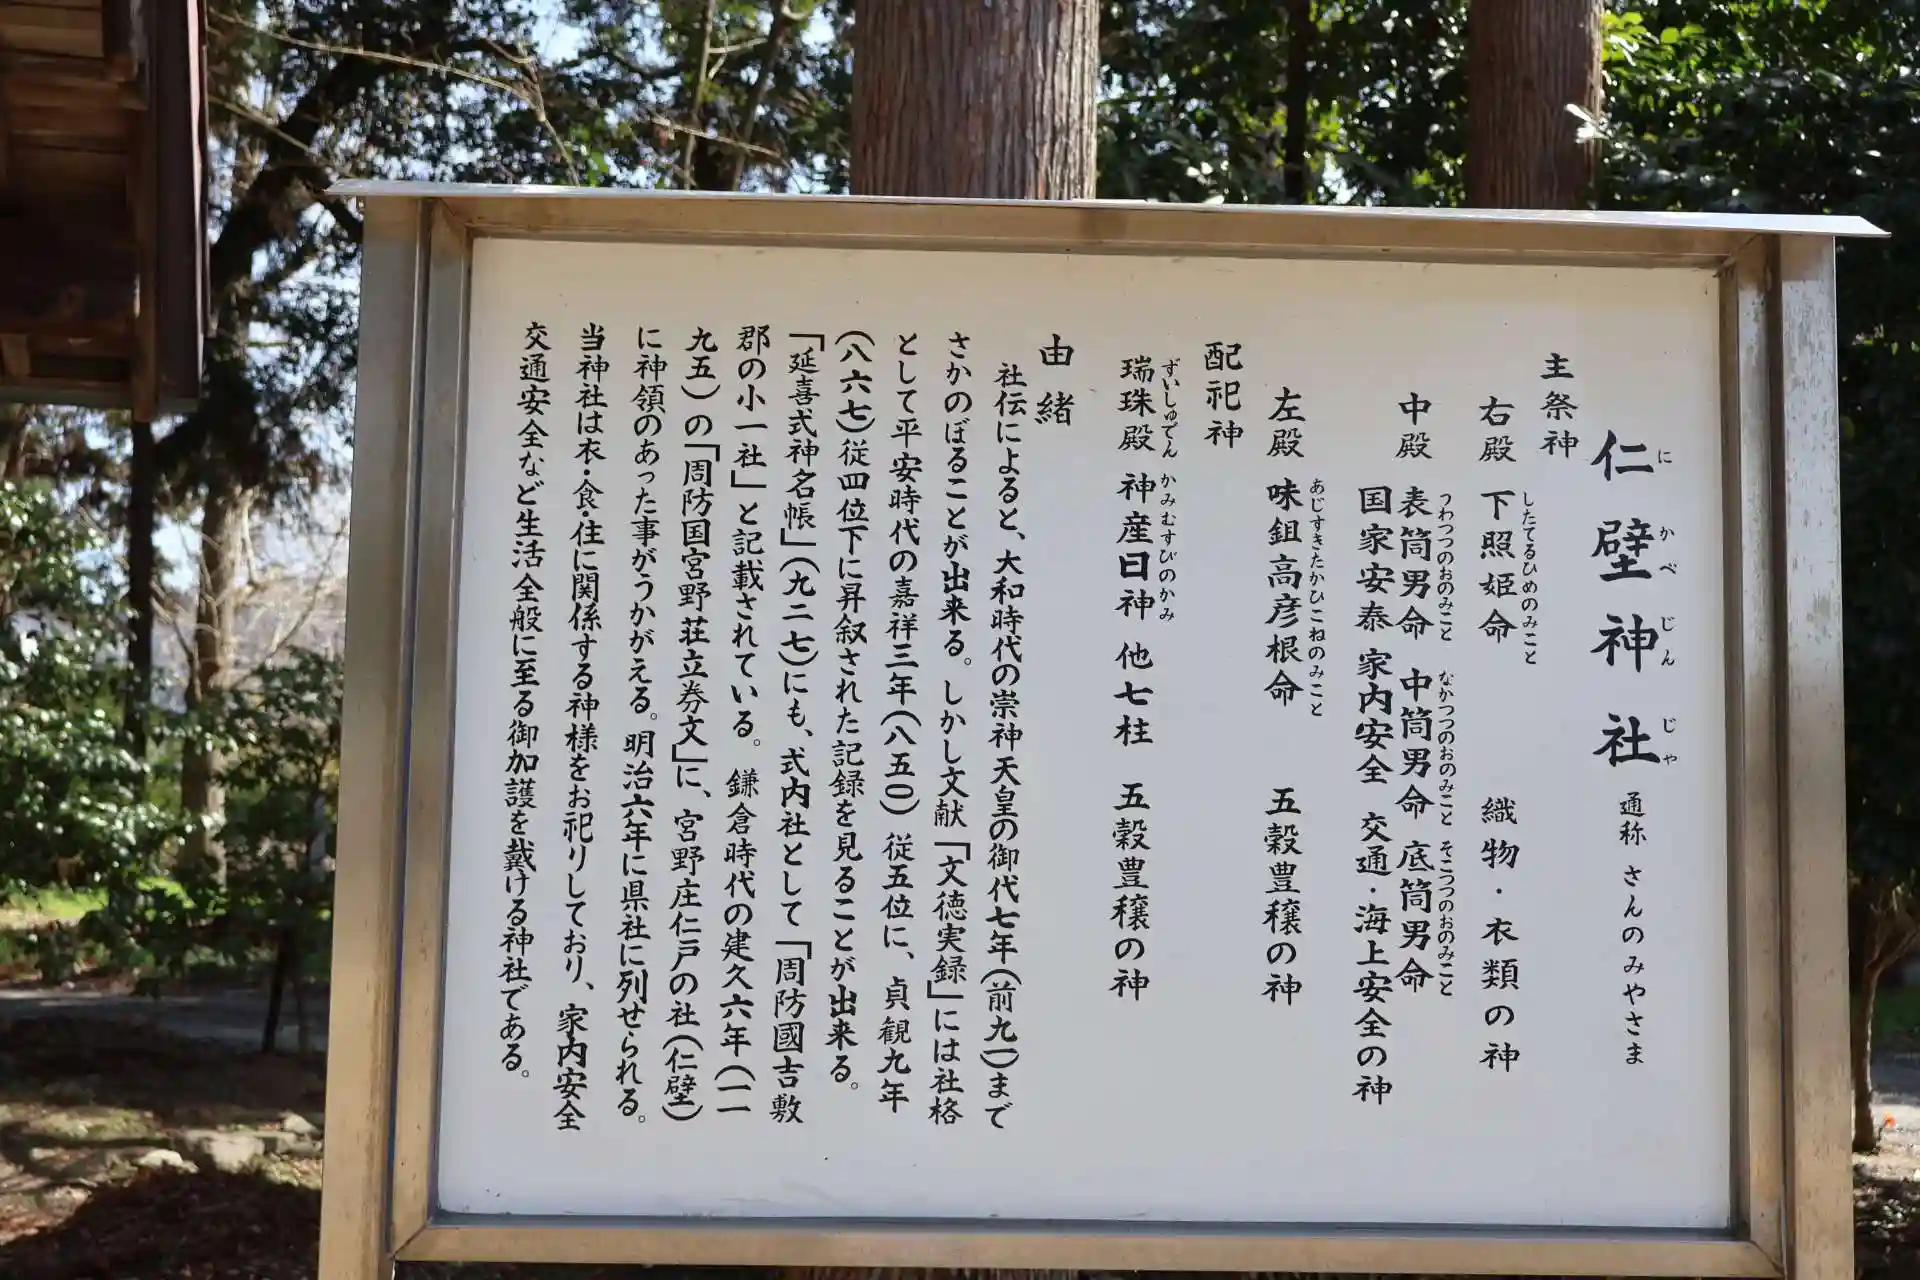 仁壁神社 通称 さんのみやさま
にかべじんじゃ
主祭神
右殿 下照姫命 織物・衣類の神
したてるひめのみこと
中殿 表筒男命 中筒男命 底筒男命
うわつつのおのみこと なかつつのおのみこと そこつつのおのみこと
国家安泰 家内安全 交通・海上安全の神
左殿 味鉏高彦根命 五穀豊穣の神
あじすきたかひこねのみこと
配祀神
瑞珠殿 神産日神 他七柱 五穀豊穣の神
ずいしゅでん かみむすびのかみ
由緒
社伝によると、大和時代の崇神天皇の御代七年(前九一)まで
さかのぼることが出来る。しかし文献「文徳実録」には社格
として平安時代の嘉祥三年(八五〇)従五位に、貞観九年
(八六七)従四位下に昇叙された記録を見ることが出来る。
「延喜式神名帳」(九二七)にも、式内社として「周防國吉敷
郡の小一社」と記載されている。鎌倉時代の建久六年(一一
九五)の「周防国宮野荘立券文」に、宮野庄仁戸の社(仁壁)
に神領のあった事がうかがえる。明治六年に県社に列せられる。
当神社は衣・食・住に関係する神様をお祀りしており、家内安全
交通安全など生活全般に至る御加護を戴ける神社である。